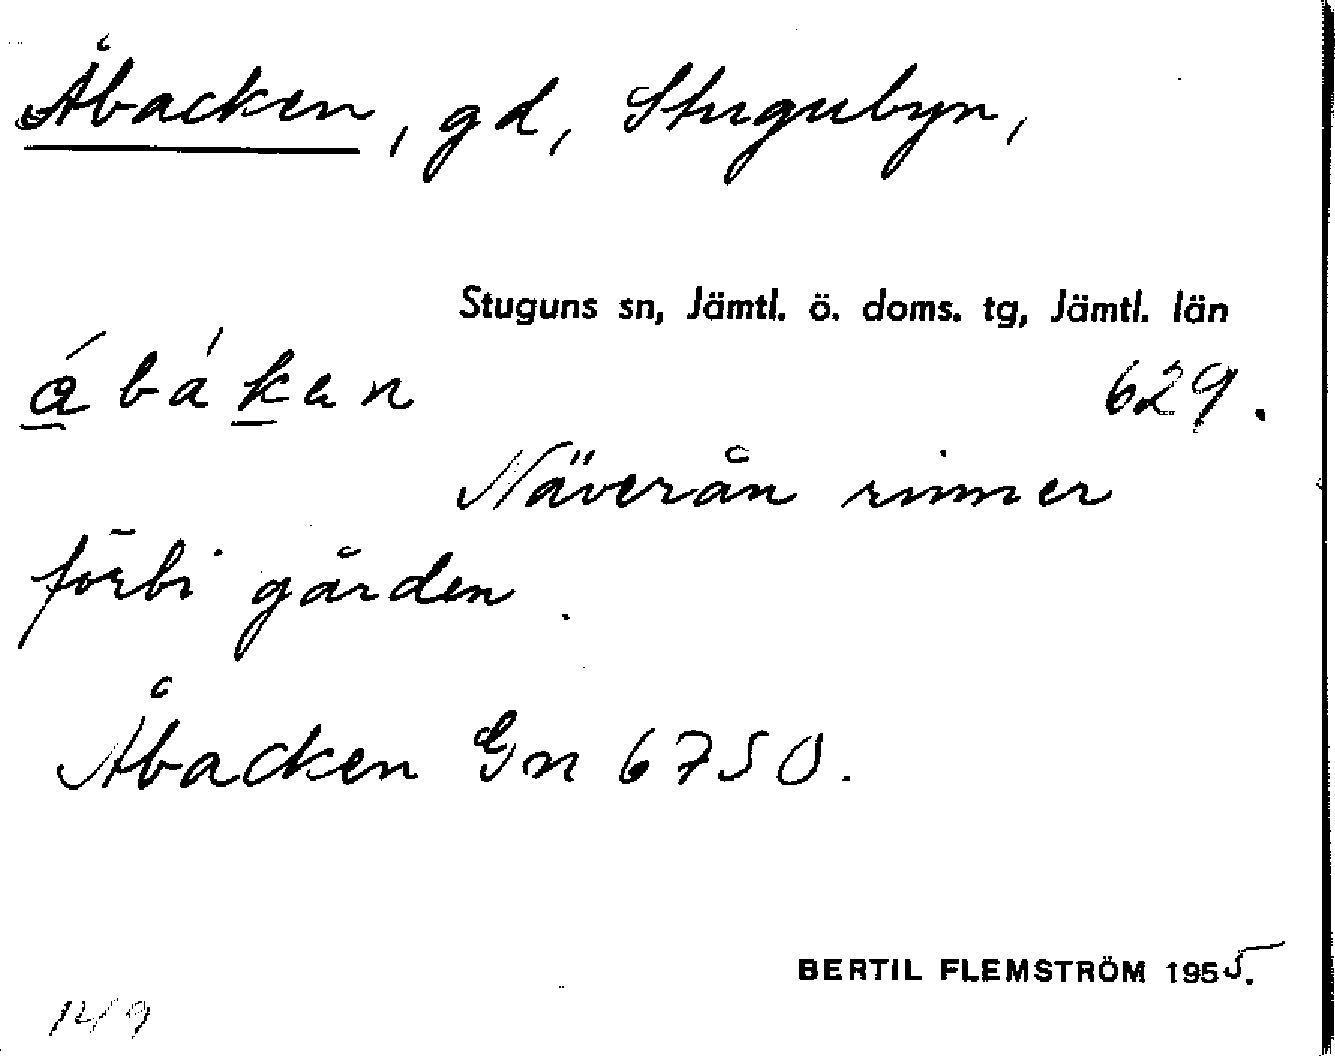 Åbacken, gd, Stugubyn,
Stuguns sn, Jämtl. ö. doms. tg, Jämtl. län
629.
Näverån rinner
förbi gården.
Åbacken Gn 6750.
BERTIL FLEMSTRÖM 1955.
12/9